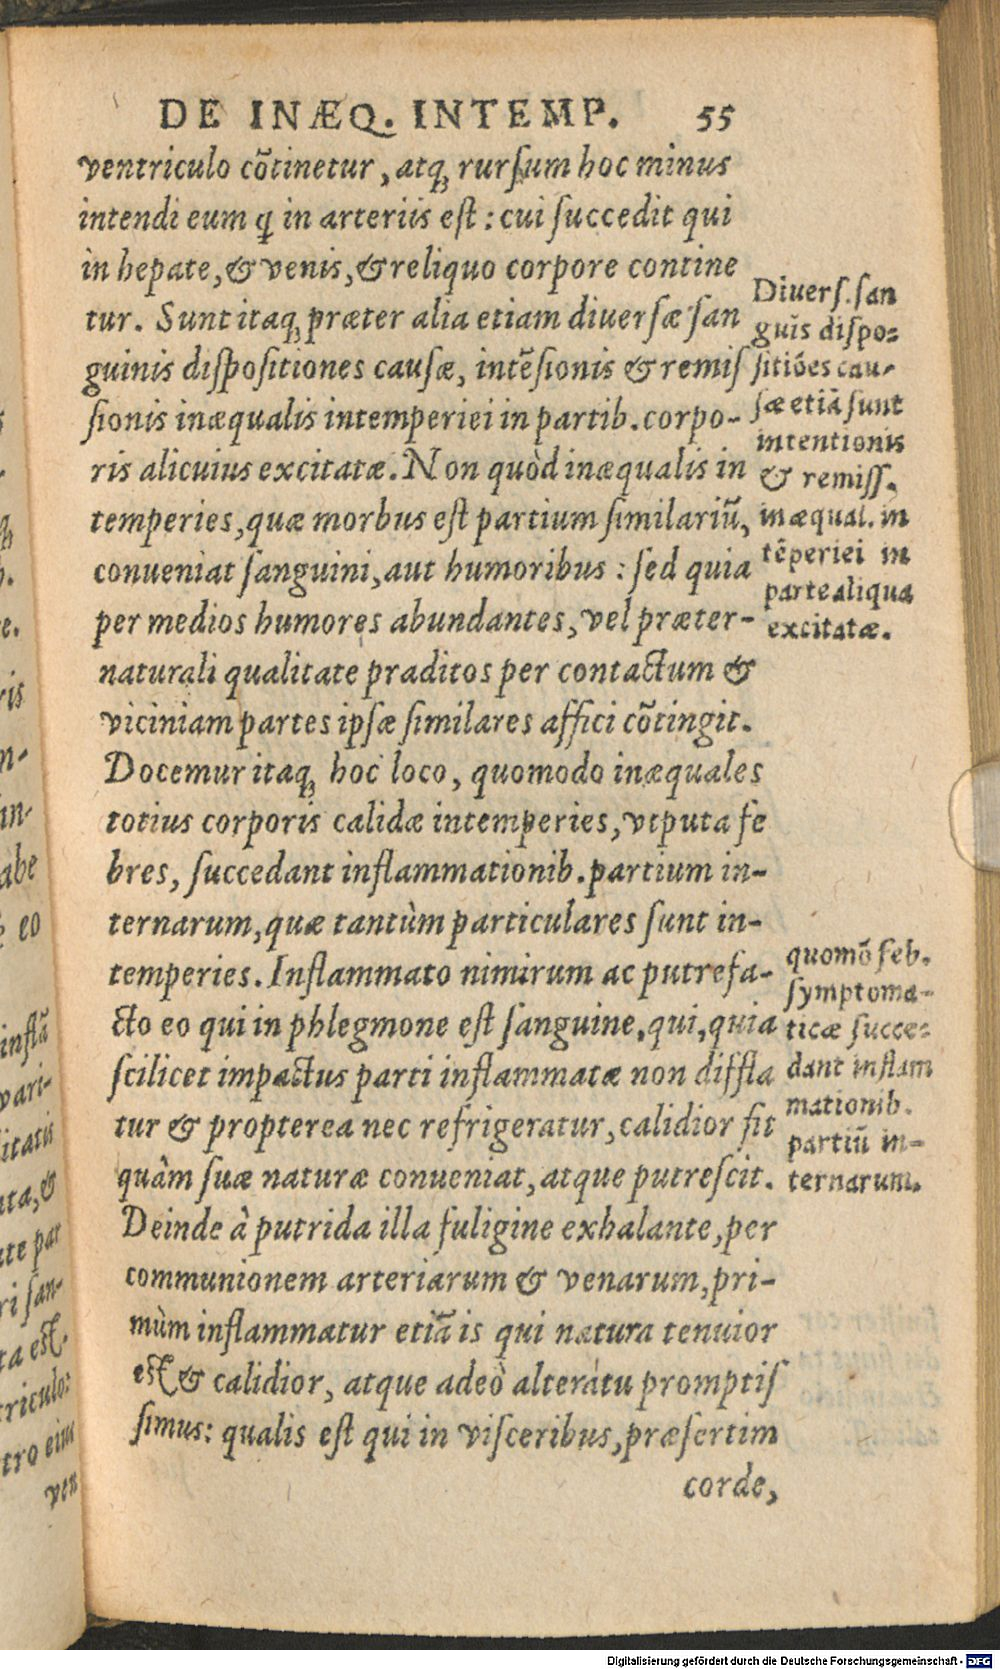 DE INÆQ. INTEMP. 55
ventriculo cõtinetur, atq; rursum hoc minus
intendi eum q̃ in arteriis est: cui succedit qui
in hepate, & venis, & reliquo corpore contine
tur. Sunt itaq; præter alia etiam diuersæ san
guinis dispositiones causæ, intẽsionis & remis
sionis inæqualis intemperiei in partib. corpo-
ris alicuius excitatæ. Non quòd inæqualis in
temperies, quæ morbus est partium similariũ,
conueniat sanguini, aut humoribus: sed quia
per medios humores abundantes, vel præter-
naturali qualitate praditos per contactum &
viciniam partes ipsæ similares affici cõtingit.
Docemur itaq; hoc loco, quomodo inæquales
totius corporis calidæ intemperies, vtputa fe
bres, succedant inflammationib. partium in-
ternarum, quæ tantùm particulares sunt in-
temperies. Inflammato nimirum ac putrefa-
cto eo qui in phlegmone est sanguine, qui, quia
scilicet impactus parti inflammatæ non diffla
tur & propterea nec refrigeratur, calidior fit
quàm suæ naturæ conueniat, atque putrescit.
Deinde à putrida illa fuligine exhalante, per
communionem arteriarum & venarum, pri-
mùm inflammatur etiã is qui natura tenuior
est & calidior, atque adeò alterátu promptis
simus: qualis est qui in visceribus, præsertim
corde,
Diuers. san
guĩs dispo-
sitiões cau-
sæ etiã sunt
intentionis
& remiss.
inæqual. in
tẽperiei in
parte aliqua
excitatæ.
quomõ feb.
symptoma-
ticæ succe-
dant inflam
mationib.
partiũ in-
ternarum.
inflã
vari-
litatis
&
par
san-
est.
triculo:
eius
ven
abe
eo
Digitalisierung gefördert durch die Deutsche Forschungsgemeinschaft - DFG